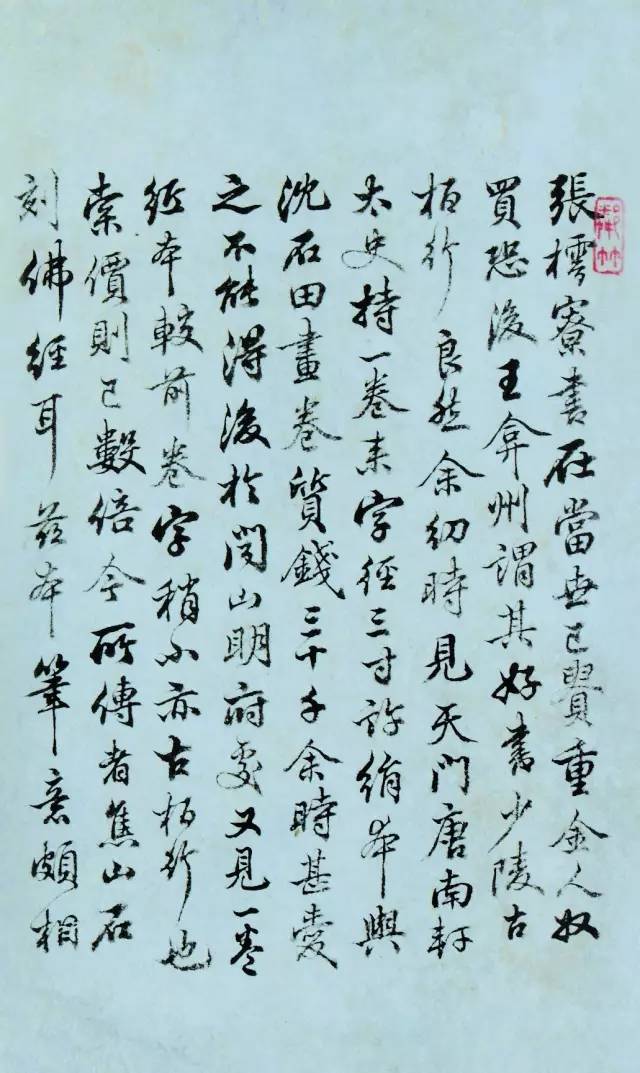 張樗寮書在當世已貴重金人奴
買恐後王弇州謂其好書少陵古
栢行良然余幼時見天門唐南軒
太史持一卷来字徑三寸許絹本與
沈石田畫卷質錢三十千余時甚愛
之不能得後於閔山明府處又見一卷
纸本較前卷字稍小亦古栢行也
索價則已數倍今所傳者焦山石
刻佛經耳茲本筆意頗相